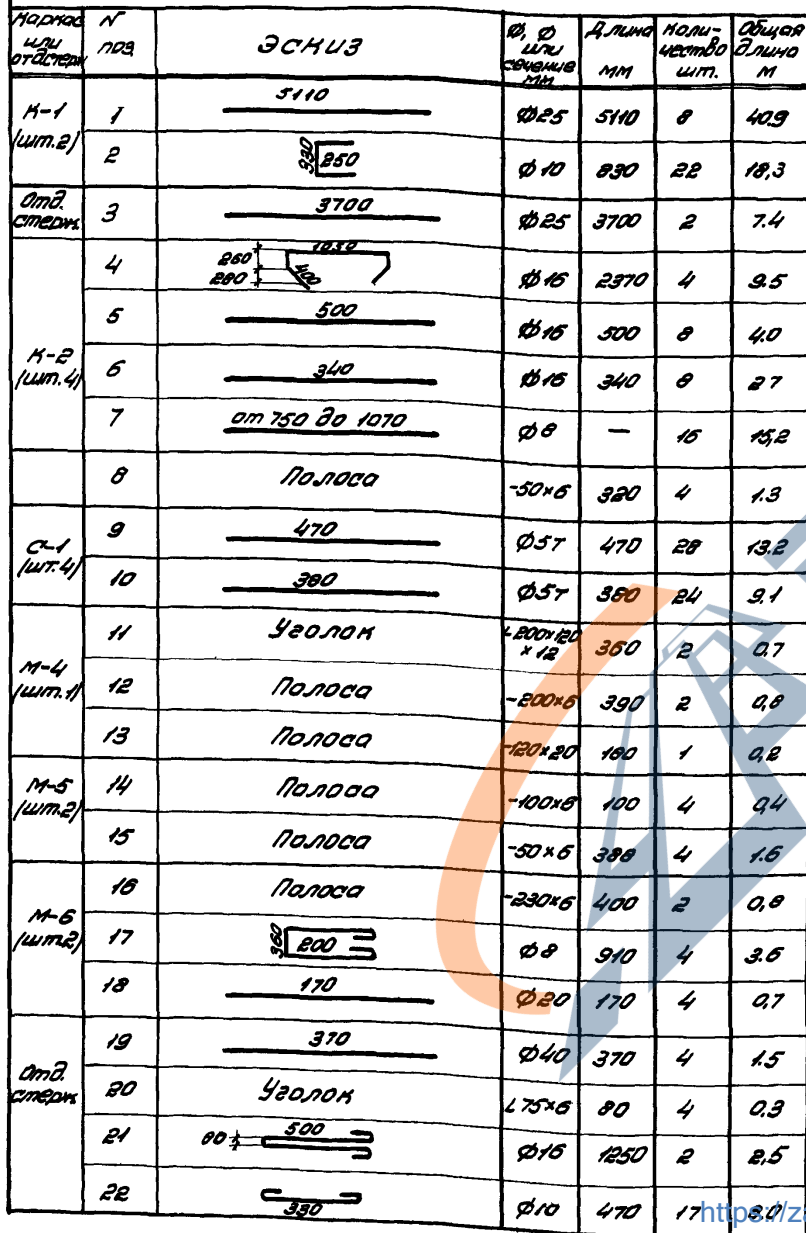 Каркас или отд.стерж. N поз. Эскиз Ф, Ф или сечение мм Длина мм Коли-чество шт. Общая длина м
К-1 (шт.2) 1 5110 Ф25 5110 8 40.9
2 330 250 Ф10 830 22 18,3
Отд. стерж. 3 3700 Ф25 3700 2 7.4
К-2 (шт.4) 4 260 280 1050 400 Ф16 2370 4 9.5
5 500 Ф16 500 8 4.0
6 340 Ф16 340 8 2.7
7 от 750 до 1070 Ф8 — 16 15,2
8 Полоса -50×6 320 4 1.3
С-1 (шт.4) 9 470 Ф5т 470 28 13.2
10 380 Ф5т 380 24 9.1
М-4 (шт.1) 11 Уголок L200×120×12 360 2 0.7
12 Полоса -200×6 390 2 0,8
13 Полоса -120×20 180 1 0,2
М-5 (шт.2) 14 Полоса -100×8 100 4 0,4
15 Полоса -50×6 388 4 1.6
М-6 (шт.2) 16 Полоса -230×6 400 2 0,8
17 360 200 Ф8 910 4 3.6
18 170 Ф20 170 4 0,7
Отд. стерж. 19 370 Ф40 370 4 1.5
20 Уголок L75×6 80 4 0.3
21 80 500 Ф16 1250 2 2,5
22 330 Ф10 470 17 8.0
https://za